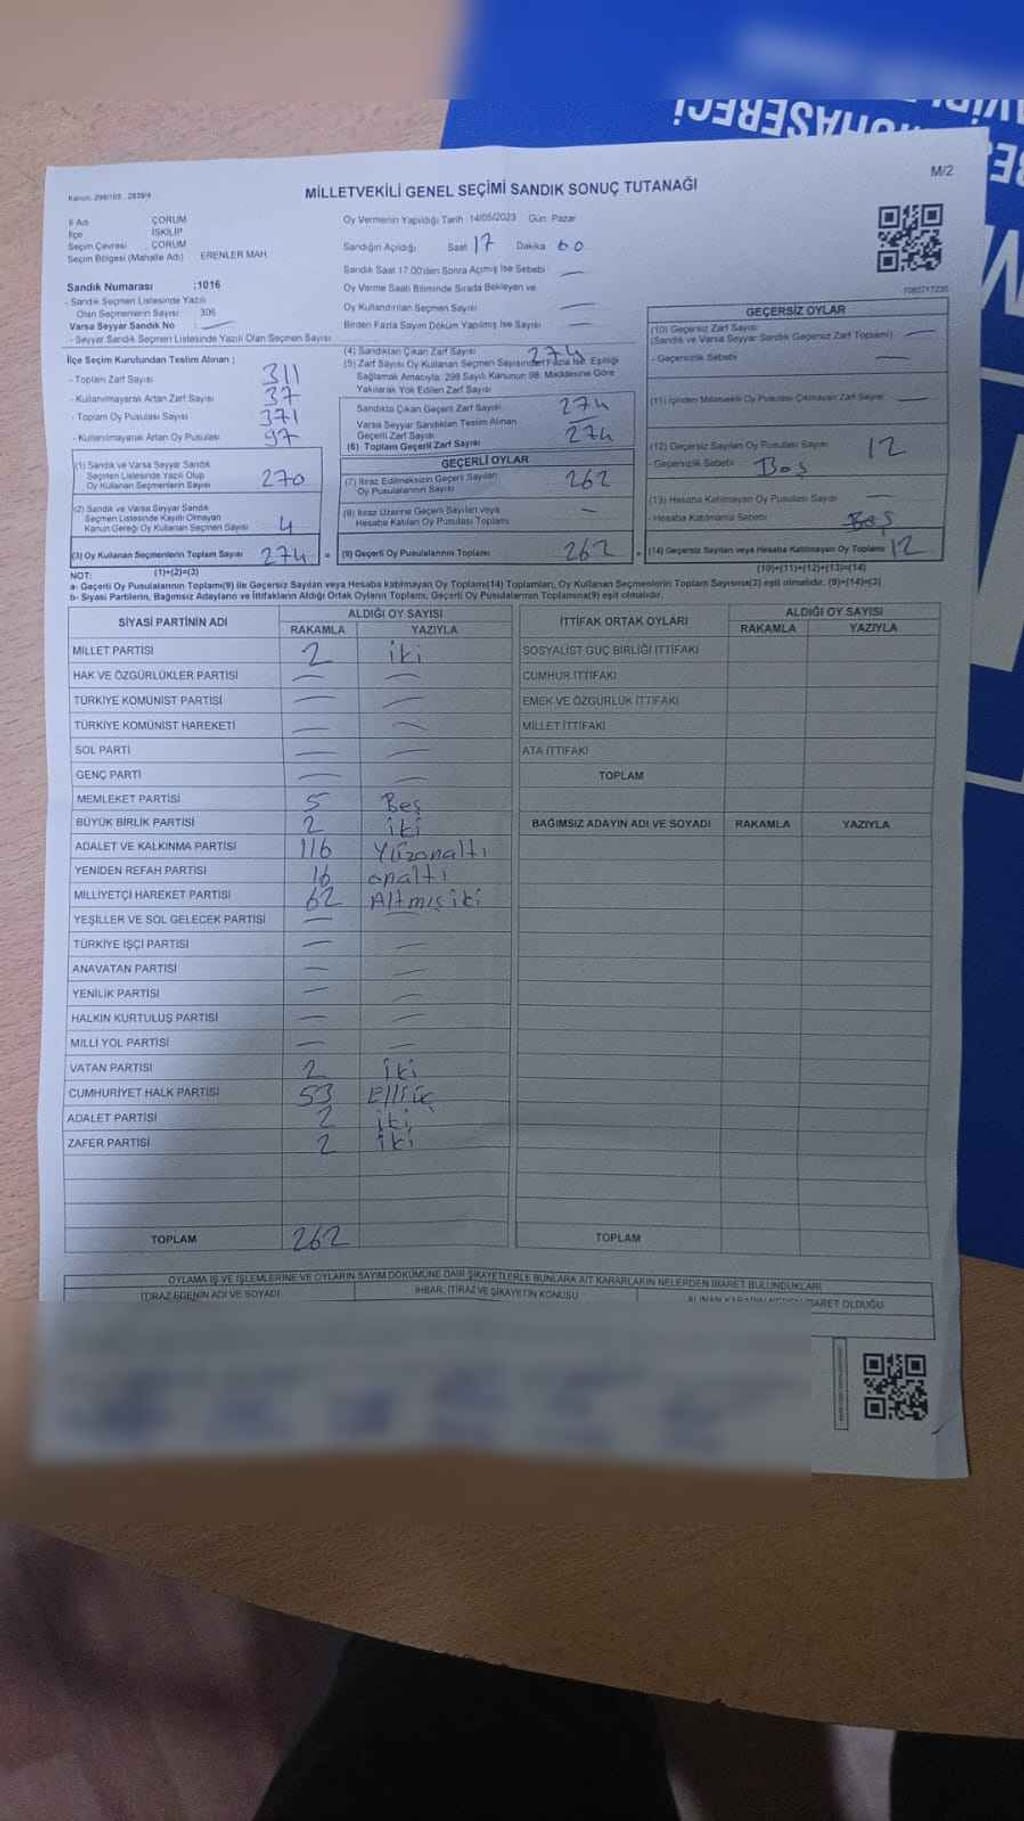 MUHASEBECİ
M/2
Kanun: 298/105 , 2839/4
MİLLETVEKİLİ GENEL SEÇİMİ SANDIK SONUÇ TUTANAĞI
İl Adı ÇORUM
İlçe İSKİLİP
Seçim Çevresi : ÇORUM
Seçim Bölgesi (Mahalle Adı) ERENLER MAH.
Sandık Numarası :1016
- Sandık Seçmen Listesinde Yazılı
Olan Seçmenlerin Sayısı 306
Varsa Seyyar Sandık No —
- Seyyar Sandık Seçmen Listesinde Yazılı Olan Seçmen Sayısı
Oy Vermenin Yapıldığı Tarih 14/05/2023 Gün Pazar
Sandığın Açıldığı Saat 17 Dakika 60
Sandık Saat 17.00'den Sonra Açılmış İse Sebebi —
Oy Verme Saati Bitiminde Sırada Bekleyen ve
Oy Kullandırılan Seçmen Sayısı —
Birden Fazla Sayım Döküm Yapılmış İse Sayısı —
İlçe Seçim Kurulundan Teslim Alınan ;
- Toplam Zarf Sayısı 311
- Kullanılmayarak Artan Zarf Sayısı 37
- Toplam Oy Pusulası Sayısı 371
- Kullanılmayarak Artan Oy Pusulası 97
(1) Sandık ve Varsa Seyyar Sandık
Seçmen Listesinde Yazılı Olup
Oy Kullanan Seçmenlerin Sayısı 270
(2) Sandık ve Varsa Seyyar Sandık
Seçmen Listesinde Kayıtlı Olmayan
Kanun Gereği Oy Kullanan Seçmen Sayısı 4
(3) Oy Kullanan Seçmenlerin Toplam Sayısı 274
(1)+(2)=(3)
(4) Sandıktan Çıkan Zarf Sayısı 274
(5) Zarf Sayısı Oy Kullanan Seçmen Sayısından Fazla İse, Eşitliği
Sağlamak Amacıyla, 298 Sayılı Kanunun 98. Maddesine Göre
Yakılarak Yok Edilen Zarf Sayısı
Sandıkta Çıkan Geçerli Zarf Sayısı 274
Varsa Seyyar Sandıktan Teslim Alınan
Geçerli Zarf Sayısı —
(6) Toplam Geçerli Zarf Sayısı 274
GEÇERLİ OYLAR
(7) İtiraz Edilmeksizin Geçerli Sayılan
Oy Pusulalarının Sayısı 262
(8) İtiraz Üzerine Geçerli Sayılan veya
Hesaba Katılan Oy Pusulası Toplamı —
(9) Geçerli Oy Pusulalarının Toplamı 262
GEÇERSİZ OYLAR
(10) Geçersiz Zarf Sayısı
(Sandık ve Varsa Seyyar Sandık Geçersiz Zarf Toplamı) —
- Geçersizlik Sebebi —
(11) İçinden Milletvekili Oy Pusulası Çıkmayan Zarf Sayısı —
(12) Geçersiz Sayılan Oy Pusulası Sayısı 12
- Geçersizlik Sebebi Boş
(13) Hesaba Katılmayan Oy Pusulası Sayısı —
- Hesaba Katılmama Sebebi Boş
(14) Geçersiz Sayılan veya Hesaba Katılmayan Oy Toplamı 12
(10)+(11)+(12)+(13)=(14)
NOT:
a- Geçerli Oy Pusulalarının Toplamı(9) ile Geçersiz Sayılan veya Hesaba katılmayan Oy Toplamı(14) Toplamları, Oy Kullanan Seçmenlerin Toplam Sayısına(3) eşit olmalıdır. (9)+(14)=(3)
b- Siyasi Partilerin, Bağımsız Adayların ve İttifakların Aldığı Ortak Oyların Toplamı, Geçerli Oy Pusulalarının Toplamına(9) eşit olmalıdır.
SİYASİ PARTİNİN ADI ALDIĞI OY SAYISI
RAKAMLA YAZIYLA
MİLLET PARTİSİ 2 iki
HAK VE ÖZGÜRLÜKLER PARTİSİ — —
TÜRKİYE KOMÜNİST PARTİSİ — —
TÜRKİYE KOMÜNİST HAREKETİ — —
SOL PARTİ — —
GENÇ PARTİ — —
MEMLEKET PARTİSİ 5 Beş
BÜYÜK BİRLİK PARTİSİ 2 iki
ADALET VE KALKINMA PARTİSİ 116 Yüzonaltı
YENİDEN REFAH PARTİSİ 16 onaltı
MİLLİYETÇİ HAREKET PARTİSİ 62 Altmışiki
YEŞİLLER VE SOL GELECEK PARTİSİ —
TÜRKİYE İŞÇİ PARTİSİ — —
ANAVATAN PARTİSİ — —
YENİLİK PARTİSİ — —
HALKIN KURTULUŞ PARTİSİ — —
MİLLİ YOL PARTİSİ — —
VATAN PARTİSİ 2 iki
CUMHURİYET HALK PARTİSİ 53 Elliüç
ADALET PARTİSİ 2 iki
ZAFER PARTİSİ 2 iki
TOPLAM 262
İTTİFAK ORTAK OYLARI ALDIĞI OY SAYISI
RAKAMLA YAZIYLA
SOSYALİST GÜÇ BİRLİĞİ İTTİFAKI
CUMHUR İTTİFAKI
EMEK VE ÖZGÜRLÜK İTTİFAKI
MİLLET İTTİFAKI
ATA İTTİFAKI
TOPLAM
BAĞIMSIZ ADAYIN ADI VE SOYADI RAKAMLA YAZIYLA
TOPLAM
OYLAMA İŞ VE İŞLEMLERİNE VE OYLARIN SAYIM DÖKÜMÜNE DAİR ŞİKAYETLERLE BUNLARA AİT KARARLARIN NELERDEN İBARET BULUNDUKLARI
İTİRAZ EDENİN ADI VE SOYADI İHBAR, İTİRAZ VE ŞİKAYETİN KONUSU ALINAN KARARIN NEDEN İBARET OLDUĞU